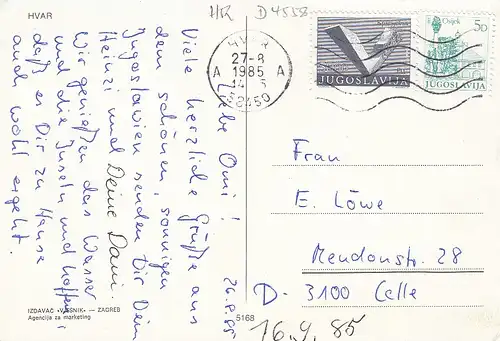 HVAR
HR D 4558
HVAR
27-8
A 1985 A
58450
JUGOSLAVIJA
Osijek
50
JUGOSLAVIJA
26.8.85
Liebe Omi!
Viele herzliche Grüße aus
dem schönen, sonnigen
Jugoslawien senden Dir Dein
Heinzi und Deine Dani.
Wir genießen das Wasser
und die Inseln und hoffen,
daß es Dir zu Hause
auch wohl ergeht.
Frau
E. Löwe
Mendonstr. 28
D- 3100 Celle
16.9.85
IZDAVAČ »VJESNIK« — ZAGREB
Agencija za marketing
5168